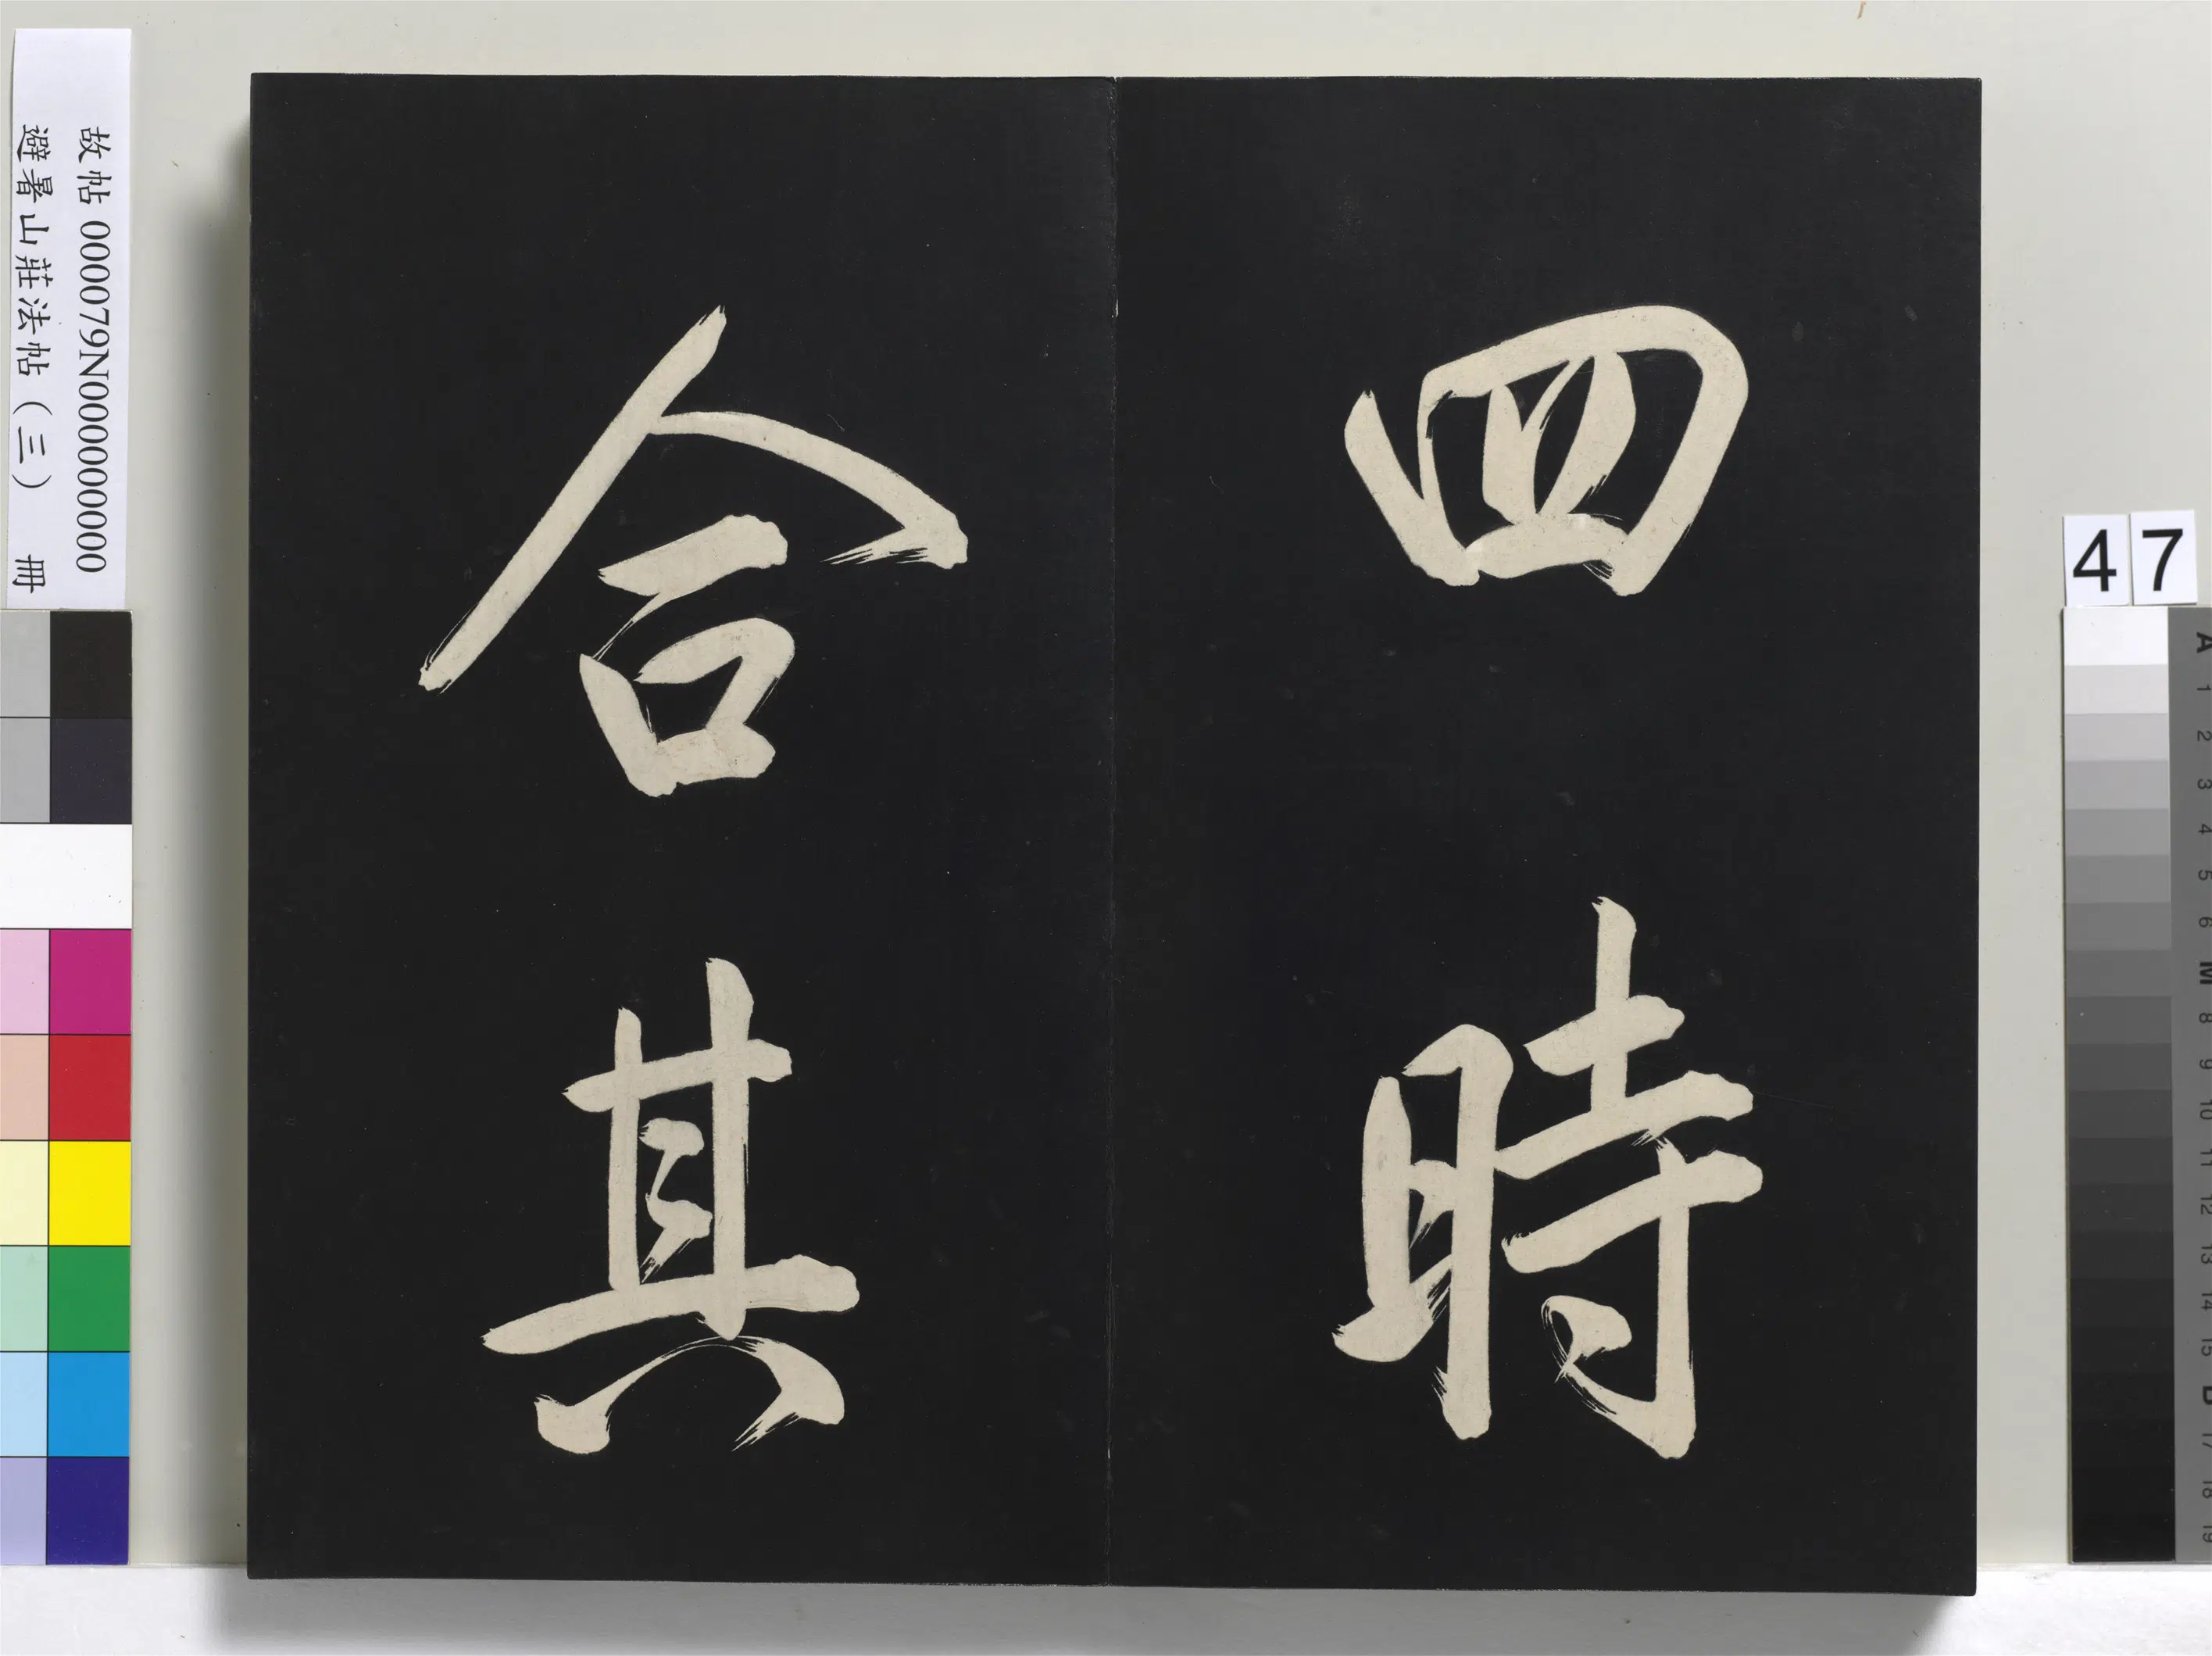 四時
合其
故帖 000079N000000000
避暑山莊法帖（三） 冊
47
A
1
2
3
4
5
6
M
8
9
10
11
12
13
14
15
B
17
18
19